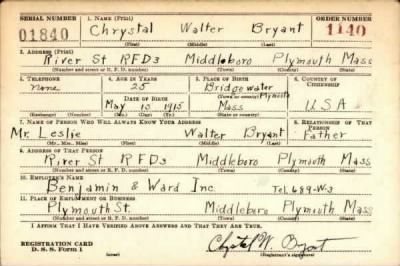 SERIAL NUMBER 1. NAME (Print) ORDER NUMBER
01840 Chrystal Walter Bryant 1140
(First) (Middle) (Last)
2. ADDRESS (Print)
River St RFD3 Middleboro Plymouth Mass
(Number and street or R. F. D. number) (Town) (County) (State)
3. TELEPHONE 4. AGE IN YEARS 5. PLACE OF BIRTH 6. COUNTRY OF CITIZENSHIP
none 25 Bridgewater
DATE OF BIRTH (Town or county) Plymouth
May 15 1915 Mass USA
(Exchange) (Number) (Mo.) (Day) (Yr.) (State or country)
7. NAME OF PERSON WHO WILL ALWAYS KNOW YOUR ADDRESS 8. RELATIONSHIP OF THAT PERSON
Mr. Leslie Walter Bryant Father
(Mr., Mrs., Miss) (First) (Middle) (Last)
9. ADDRESS OF THAT PERSON
River St RFD3 Middleboro Plymouth Mass
(Number and street or R. F. D. number) (Town) (County) (State)
10. EMPLOYER'S NAME
Benjamin & Ward Inc Tel. 689-W-3
11. PLACE OF EMPLOYMENT OR BUSINESS
Plymouth St. Middleboro Plymouth Mass
(Number and street or R. F. D. number) (Town) (County) (State)
I AFFIRM THAT I HAVE VERIFIED ABOVE ANSWERS AND THAT THEY ARE TRUE.
REGISTRATION CARD
D. S. S. Form 1 (over) Chrystal W. Bryant
(Registrant's signature)